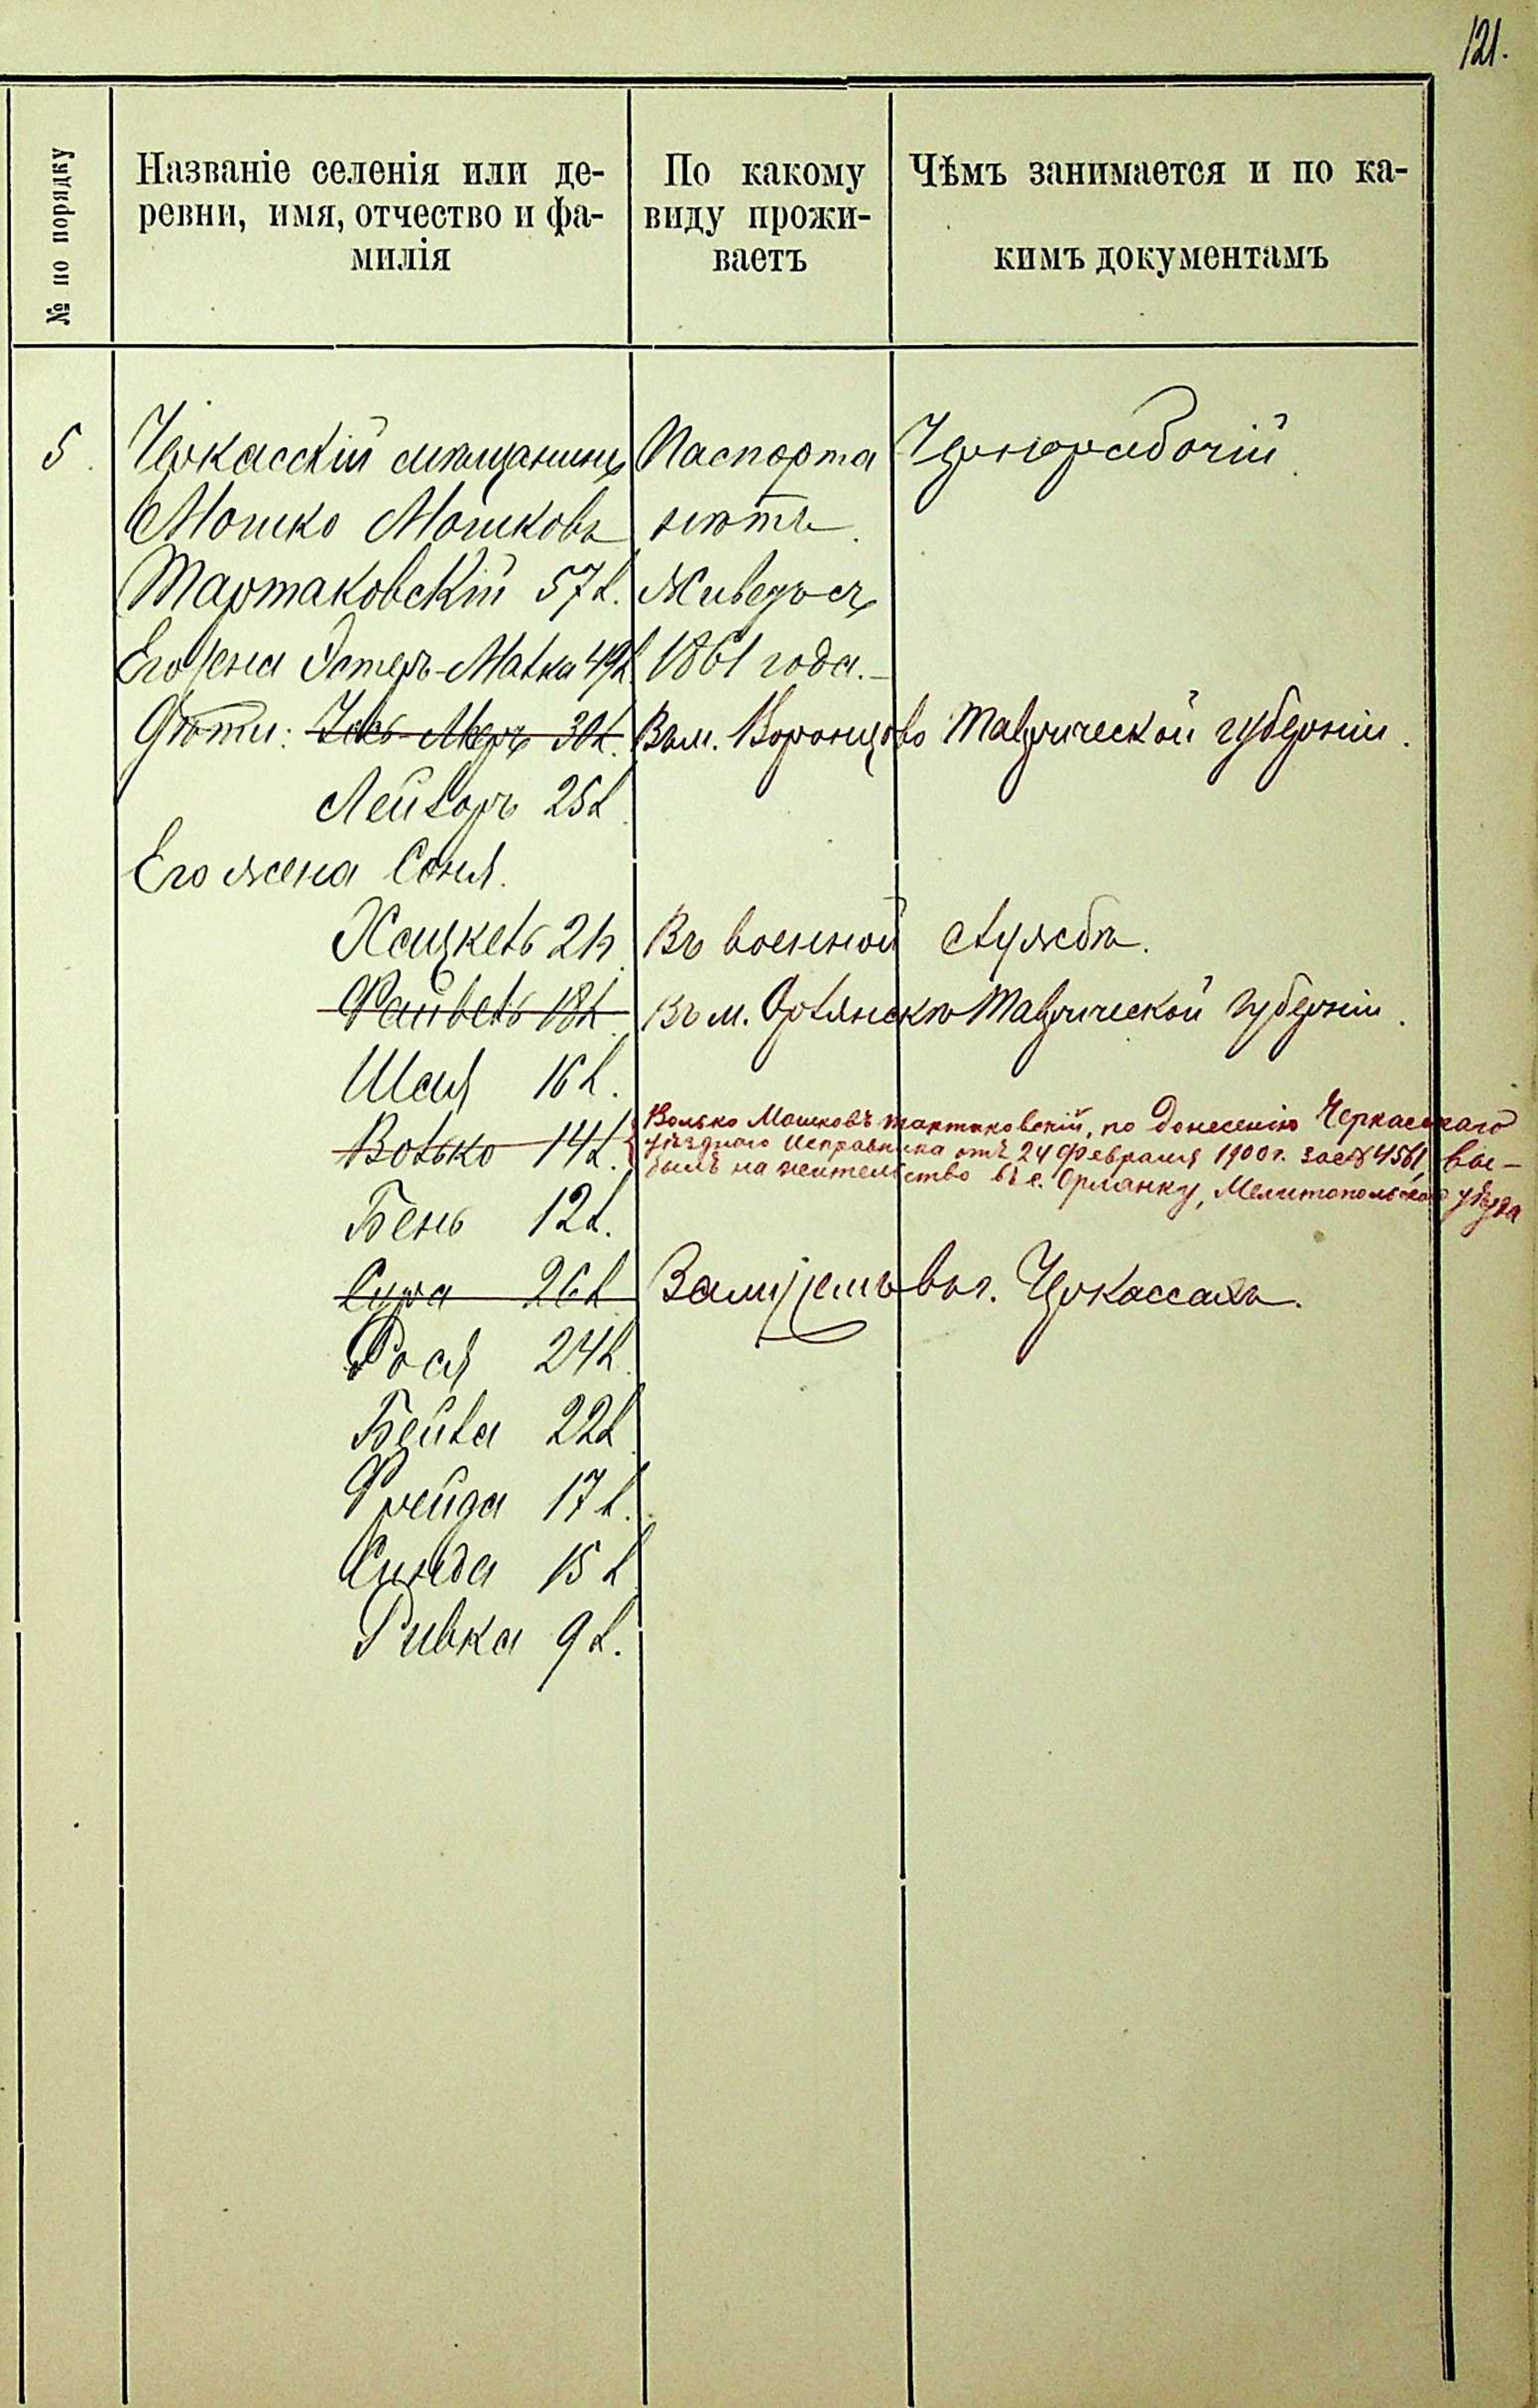 121.
№ по порядку
Названіе селенія или де-
ревни, имя, отчество и фа-
милія
По какому
виду прожи-
ваетъ
Чѣмъ занимается и по ка-
кимъ документамъ
5. Черкасскій мѣщанинъ Паспорта Чернорабочій.
Мошко Мошковъ нѣтъ.
Тартаковскій 57 л. Живетъ съ
Его жена Эстеръ-Малка 49 л. 1861 года.-
Дѣти: 30 л. Въ м. Воронцово Таврической губерніи.
Лейзоръ 25 л.
Его жена Соня.
Хацкель 21 л. Въ военной службѣ.
Файвель 18 л. Въ м. Орлянскѣ Таврической губерніи.
Шая 16 л.
Волько 14 л. Волько Мошковъ Тартаковскій, по донесенію Черкасскаго
уѣзднаго Исправника отъ 24 Февраля 1900 г. за № 4561, вы-
былъ на жительство въ с. Орлянку, Мелитопольскаго уѣзда
Бень 12 л.
Сура 26 л. Замужемъ въ г. Черкассахъ.
Рося 24 л.
Бейла 22 л.
Фрейда 17 л.
Синда 15 л.
Ривка 9 л.